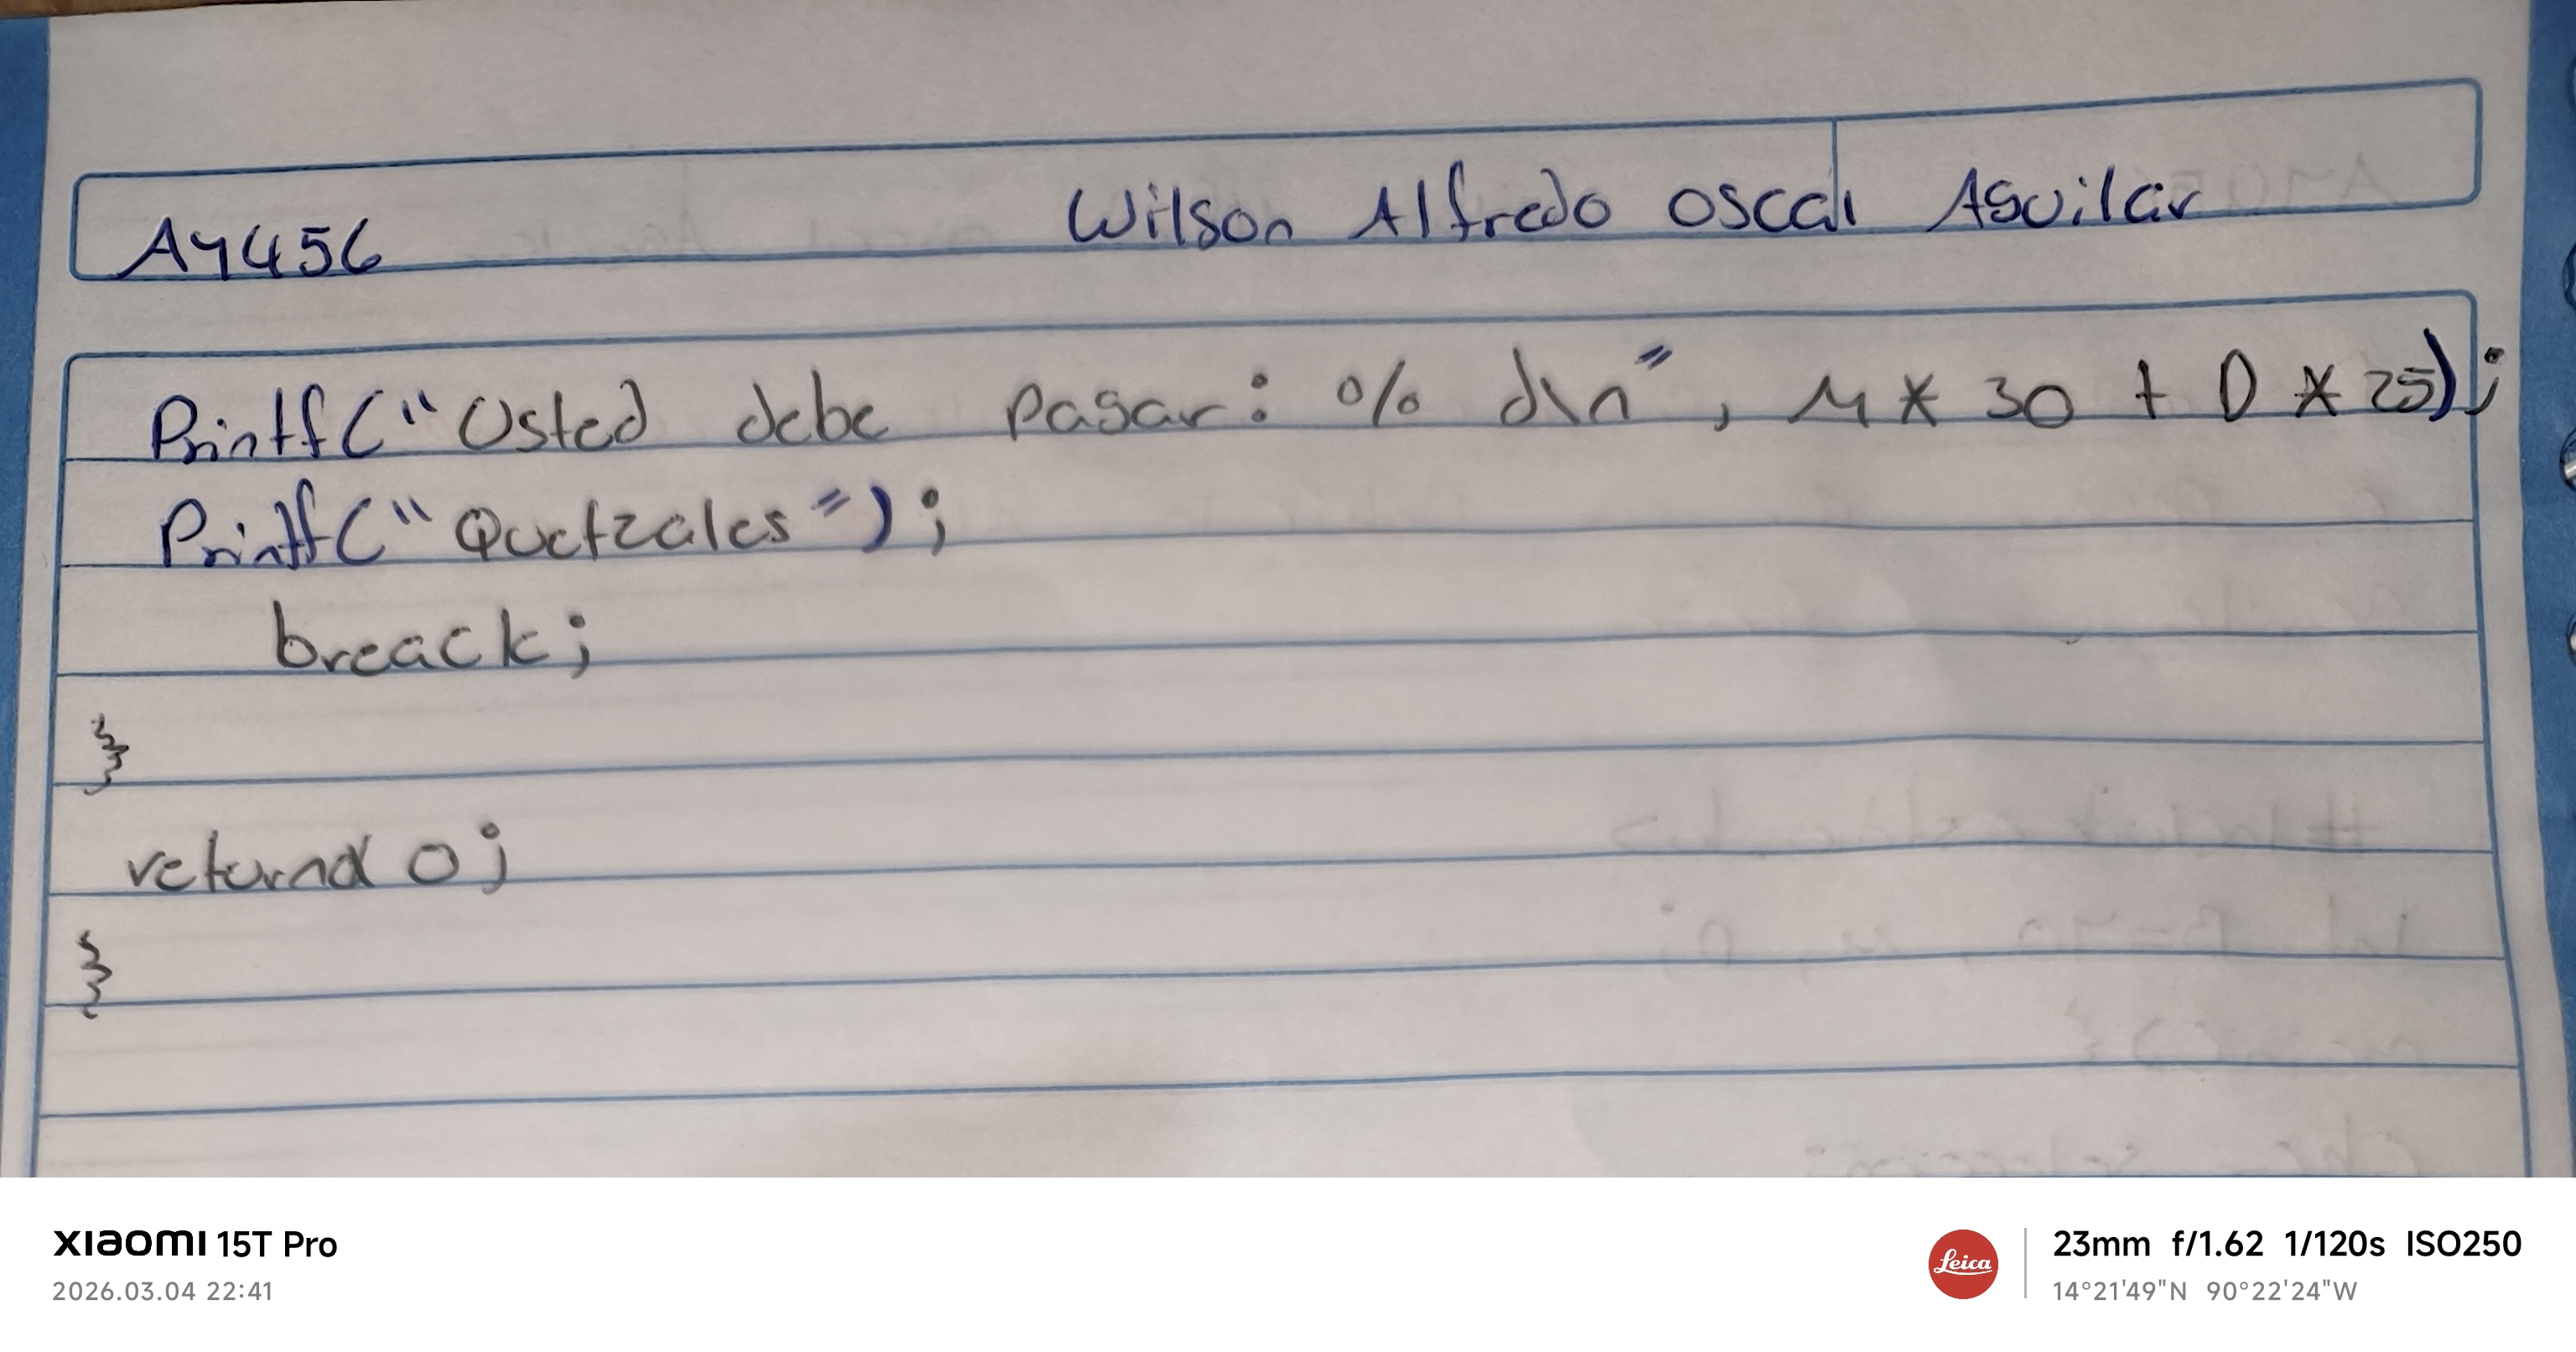 AY456 Wilson Alfredo Oscal Aguilar
Printf("Usted debe Pagar: % d\n", M * 30 + D * 25);
Printf("Quetzales");
breack;
}
returnd 0;
}
XIAOMI 15T Pro
2026.03.04 22:41
Leica
23mm f/1.62 1/120s ISO250
14°21'49"N 90°22'24"W